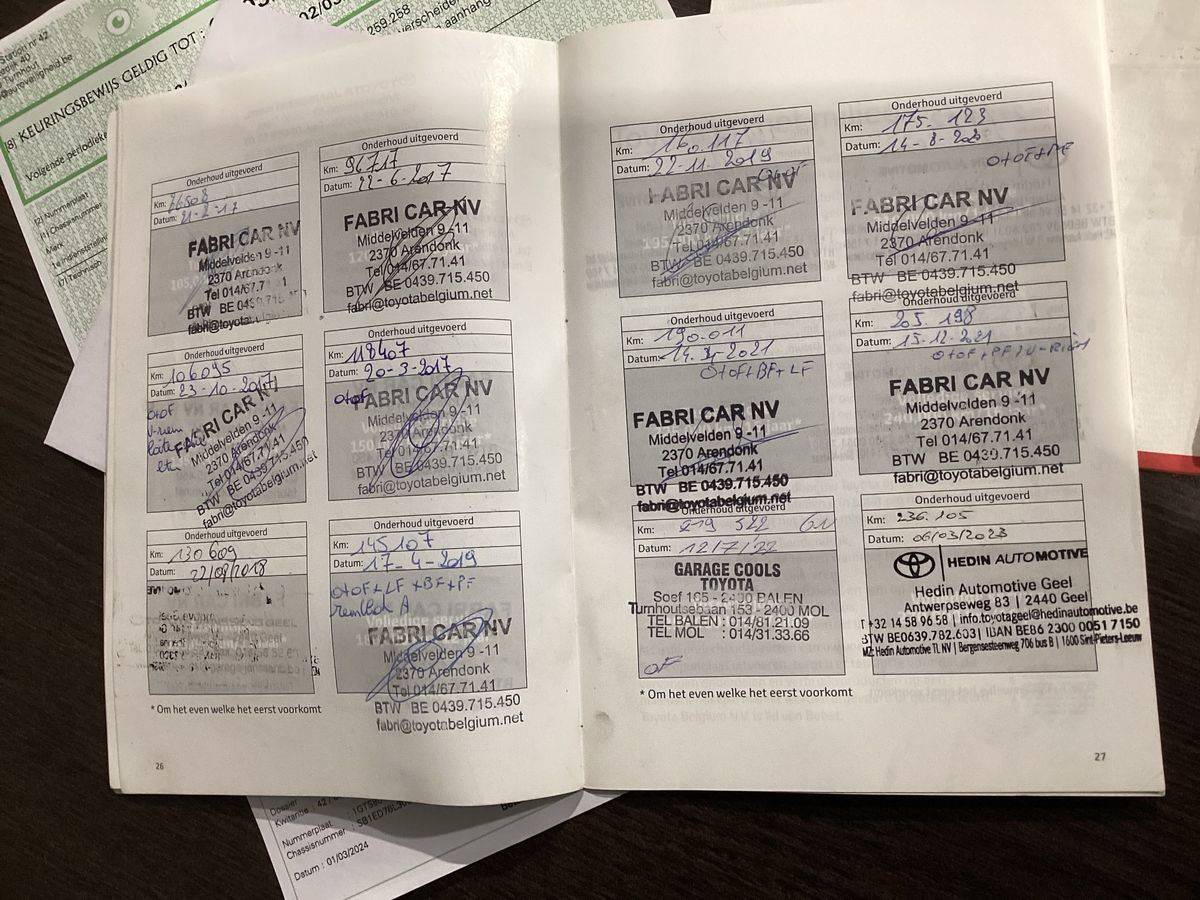 Station nr 42
(8) KEURINGSBEWIJS GELDIG TOT :
Volgende periodieke
Nummerplaat
Chassisnummer
259.258
verscheiden
aanhang
Onderhoud uitgevoerd
Km: 76508
Datum: 21-2-17
FABRI CAR NV
Middelvelden 9 -11
2370 Arendonk
Tel 014/67.71
BTW BE 0439.715
Onderhoud uitgevoerd
Km: 96717
Datum: 22-6-2017
FABRI CAR NV
Middelvelden 9 -11
2370 Arendonk
Tel 014/67.71.41
BTW BE 0439.715.450
fabri@toyotabelgium.net
Onderhoud uitgevoerd
Km: 106095
Datum: 23-10-2017
OtOF
V-riem
FABRI CAR NV
Middelvelden 9 -11
2370 Arendonk
Tel 014/67.71.41
BTW BE 0439.715.450
fabri@toyotabelgium.net
Onderhoud uitgevoerd
Km: 118407
Datum: 20-3-2017
OtOF
FABRI CAR NV
Middelvelden 9 -11
2370 Arendonk
Tel 014/67.71.41
BTW BE 0439.715.450
fabri@toyotabelgium.net
Onderhoud uitgevoerd
Km: 130609
Datum: 22/08/2018
Onderhoud uitgevoerd
Km: 145107
Datum: 17-4-2019
OtOF+LF+BF+PF
remblok A
FABRI CAR NV
Middelvelden 9 -11
2370 Arendonk
Tel 014/67.71.41
BTW BE 0439.715.450
fabri@toyotabelgium.net
* Om het even welke het eerst voorkomt
26
Onderhoud uitgevoerd
Km: 160.117
Datum: 22-11-2019
OtOF
FABRI CAR NV
Middelvelden 9 -11
2370 Arendonk
Tel 014/67.71.41
BTW BE 0439.715.450
fabri@toyotabelgium.net
Onderhoud uitgevoerd
Km: 175-123
Datum: 14-8-2020
FABRI CAR NV
Middelvelden 9 -11
2370 Arendonk
Tel 014/67.71.41
BTW BE 0439.715.450
fabri@toyotabelgium.net
Onderhoud uitgevoerd
Km: 190.011
OtOF+BF+LF
FABRI CAR NV
Middelvelden 9 -11
2370 Arendonk
Tel 014/67.71.41
BTW BE 0439.715.450
fabri@toyotabelgium.net
Onderhoud uitgevoerd
Km: 205.198
Datum: 15-12-2021
FABRI CAR NV
Middelvelden 9 -11
2370 Arendonk
Tel 014/67.71.41
BTW BE 0439.715.450
fabri@toyotabelgium.net
Onderhoud uitgevoerd
Km: 219 522
Datum: 12/7/22
GARAGE COOLS
TOYOTA
Soef 165 - 2400 BALEN
Turnhoutsebaan 153 - 2400 MOL
TEL BALEN : 014/81.21.09
TEL MOL : 014/31.33.66
OF
Onderhoud uitgevoerd
Km: 236.105
Datum: 06/03/2023
HEDIN AUTOMOTIVE
Hedin Automotive Geel
Antwerpseweg 83 | 2440 Geel
T +32 14 58 96 58 | info.toyotageel@hedinautomotive.be
BTW BE0639.782.603| IBAN BE86 2300 0051 7150
MZ: Hedin Automotive TL NV | Bergensesteenweg 706 bus B | 1600 Sint-Pieters-Leeuw
* Om het even welke het eerst voorkomt
27
Dossier
Kwitantie
Nummerplaat
Chassisnummer
Datum : 01/03/2024